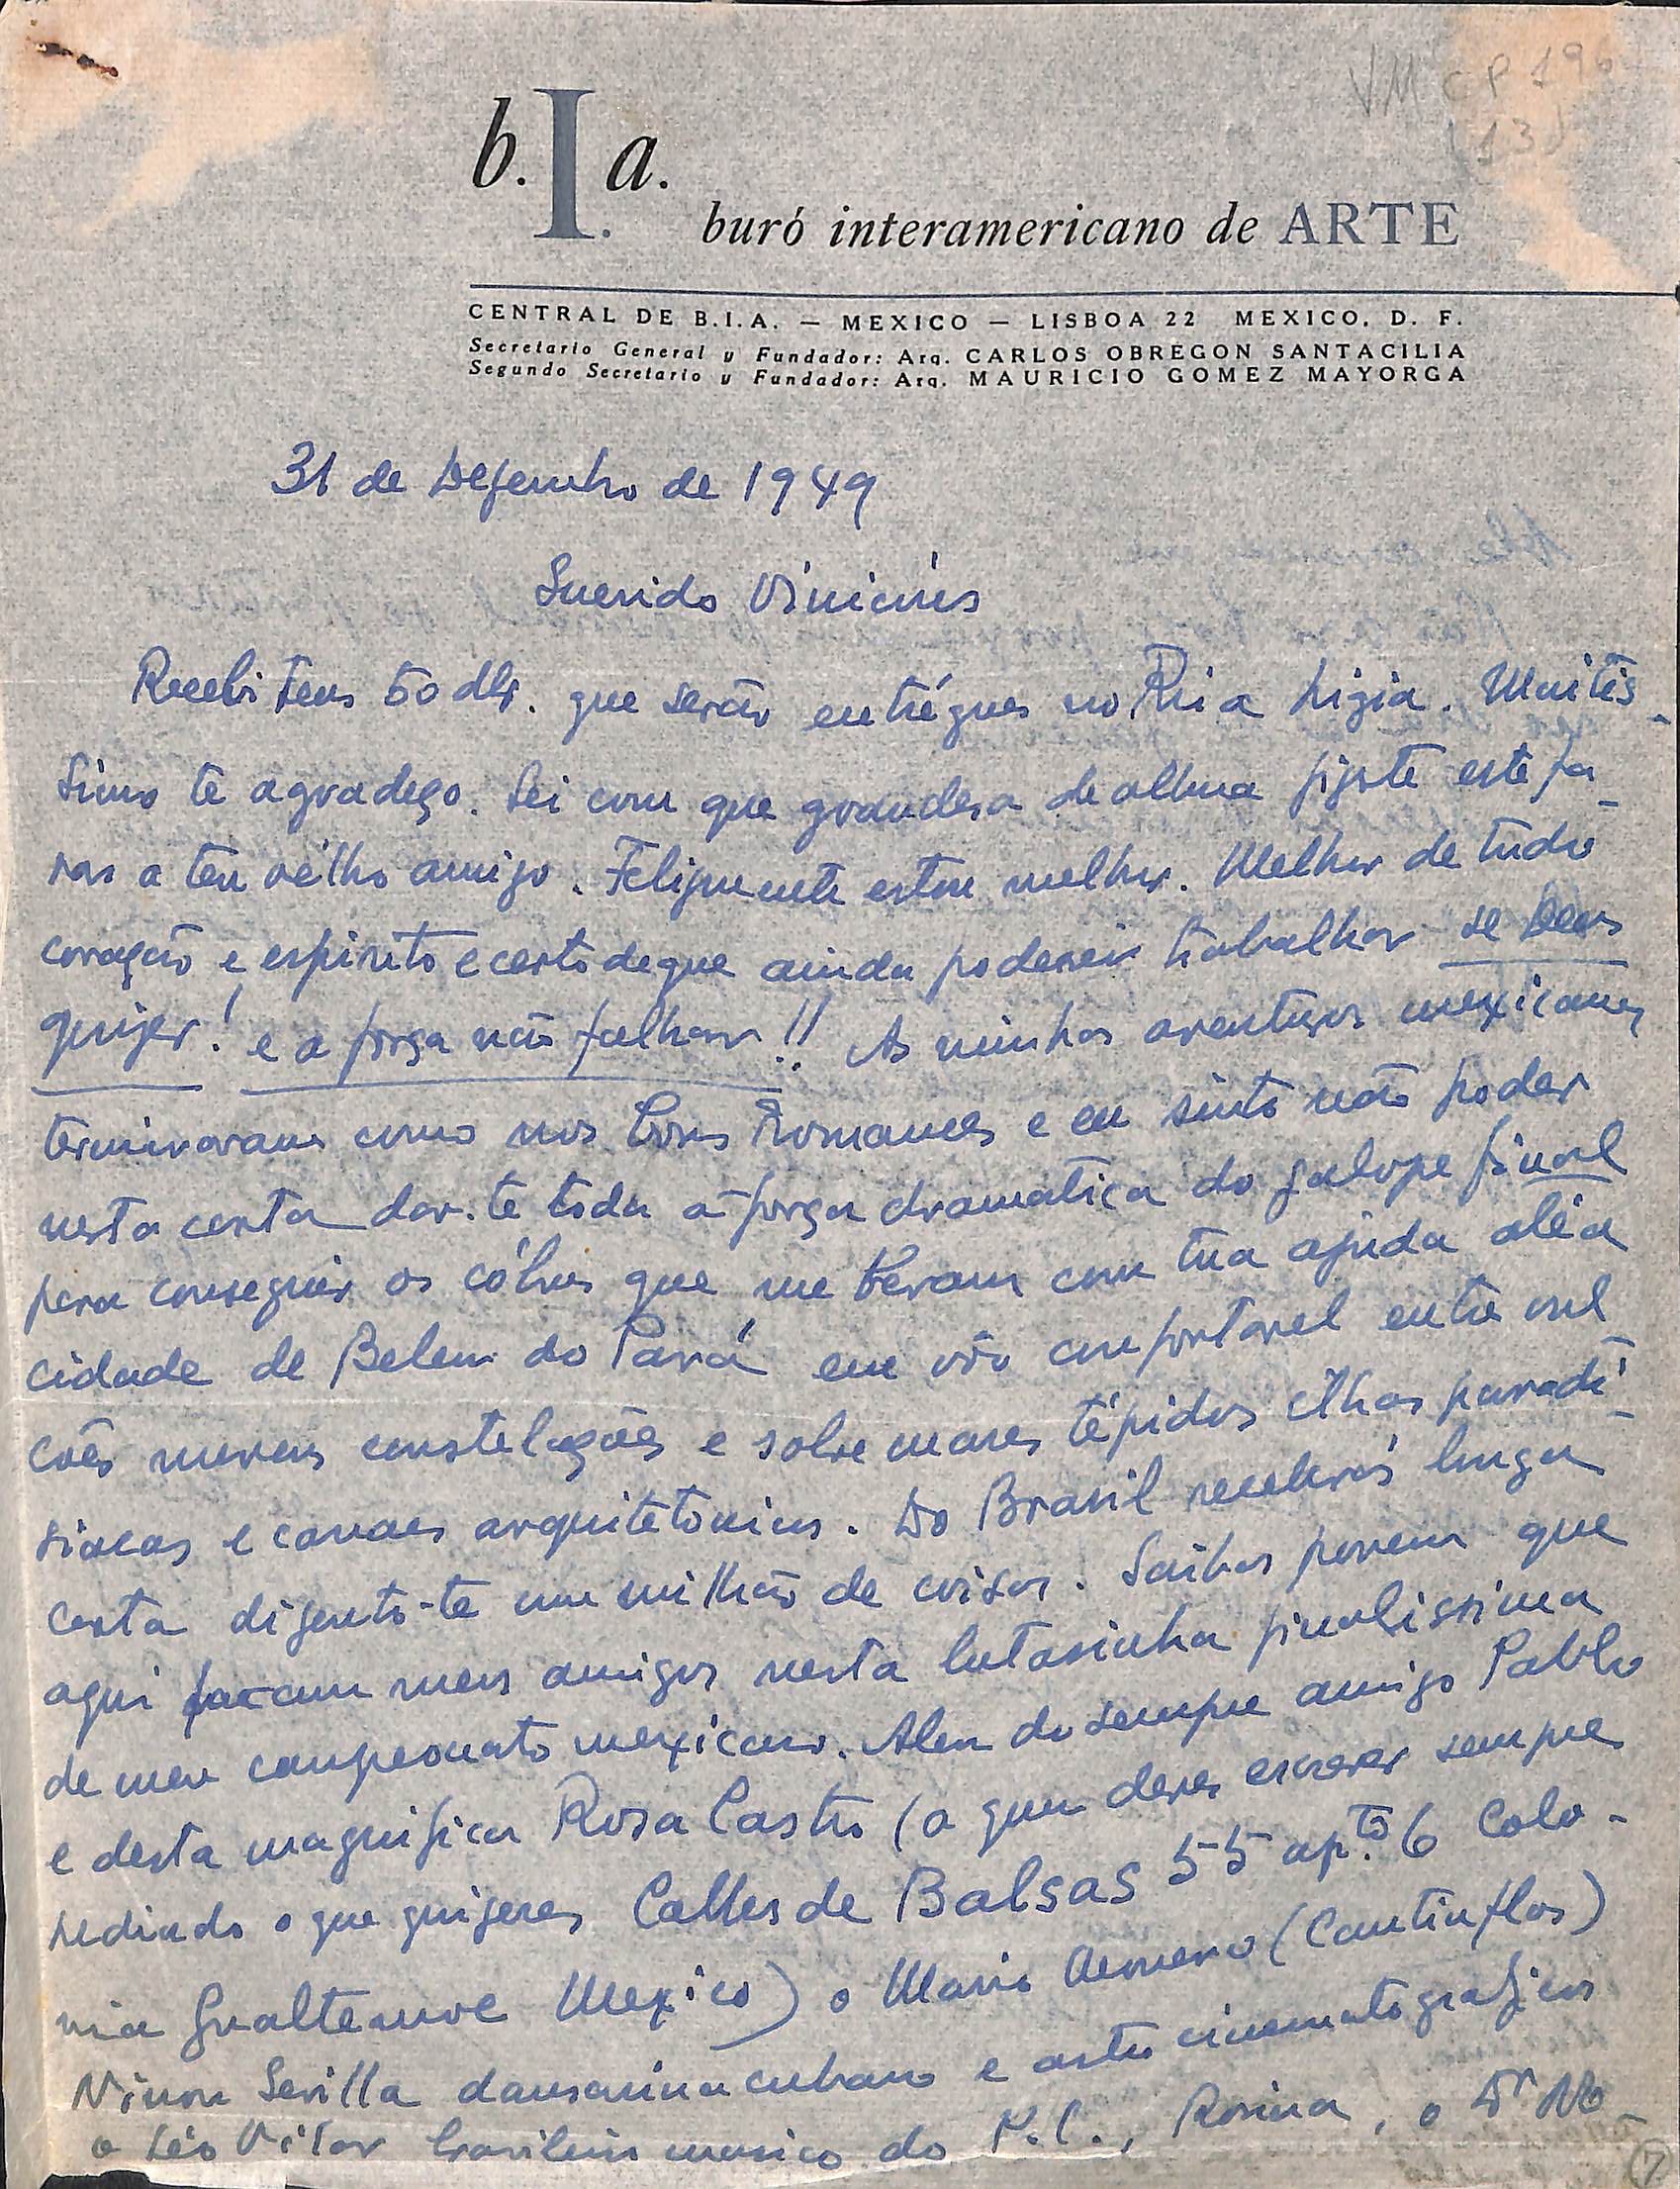 VM CP 196
(13)
b.I.a.
buró interamericano de ARTE
CENTRAL DE B.I.A. — MEXICO — LISBOA 22 MEXICO, D. F.
Secretario General y Fundador: Arq. CARLOS OBREGON SANTACILIA
Segundo Secretario y Fundador: Arq. MAURICIO GOMEZ MAYORGA
31 de Dezembro de 1949
Querido Vinicius
Recebi teus 50 dlr. que serão entrégues no Rio a Ligia. Muitis-
simo te agradeço. Sei com que grandesa de alma fizste este fa-
vor a teu vélho amigo. Felizmente estou melhor. Melhor de tudo
coração e espirito e certo de que ainda poderei trabalhar se Deus
quizer! e a força não falhar!! As minhas aventuras mexicanas
terminaram como nos bons romances e eu sinto não poder
nesta carta dar-te toda a força dramatica do galope final
para conseguir os cóbres que me levam com tua ajuda até a
cidade de Belem do Pará em vôo confortavel entre vul-
cões nuvens constelações e sobre mares tépidos ilhas paradi-
siacas e canaes arquitetonicos. Do Brasil receberás longa
carta dizento-te um milhão de coisas. Saibas porem que
aqui foram meus amigos nesta lutasinha finalissima
de meu campeonato mexicano. Alem do sempre amigo Pablo
e desta magnifica Rosa Castro (a quem deves escrever sempre
pedindo o que quizeres Calles de Balsas 55 apto. 6 Colo-
nia Gualtemoc Mexico) o Mario Moreno (Cantinflas)
Ninon Sevilla dansarina cubana e astro cinematografico
o Léo Vilar brasileiro musico do P.C., Rosina, o Dr
7